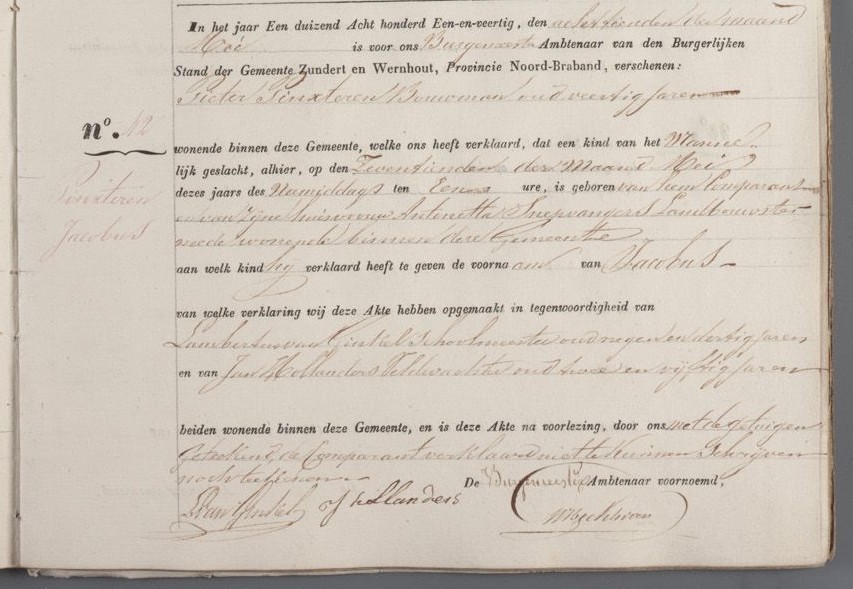 In het jaar Een duizend Acht honderd Een-en-veertig, den achttienden der maand
Mei is voor ons Burgemeester Ambtenaar van den Burgerlijken
Stand der Gemeente Zundert en Wernhout, Provincie Noord-Braband, verschenen:
Pieter Pinxteren Bouwman oud veertig jaren
n°. 42
wonende binnen deze Gemeente, welke ons heeft verklaard, dat een kind van het Manne-
lijk geslacht, alhier, op den Zeventienden der Maand Mei
dezes jaars des Namiddags ten Eene ure, is geboren van hem Comparant
en van zijne huisvrouw Antonetta Snepvangers Landbouwster
mede wonende binnen deze Gemeente
Pinxteren
Jacobus
aan welk kind hij verklaard heeft te geven de voornaam van Jacobus
van welke verklaring wij deze Akte hebben opgemaakt in tegenwoordigheid van
Lambertus van Ginkel Schoolmeester oud negen en dertig jaren
en van Jan Hollanders Veldwachter oud twee en vijftig jaren
beiden wonende binnen deze Gemeente, en is deze Akte na voorlezing, door ons met de getuigen
geteekend, de Comparant verklaard niet te kunnen Schrijven
noch teekenen
De Burgemeester Ambtenaar voornoemd,
L van Ginkel J Hollanders